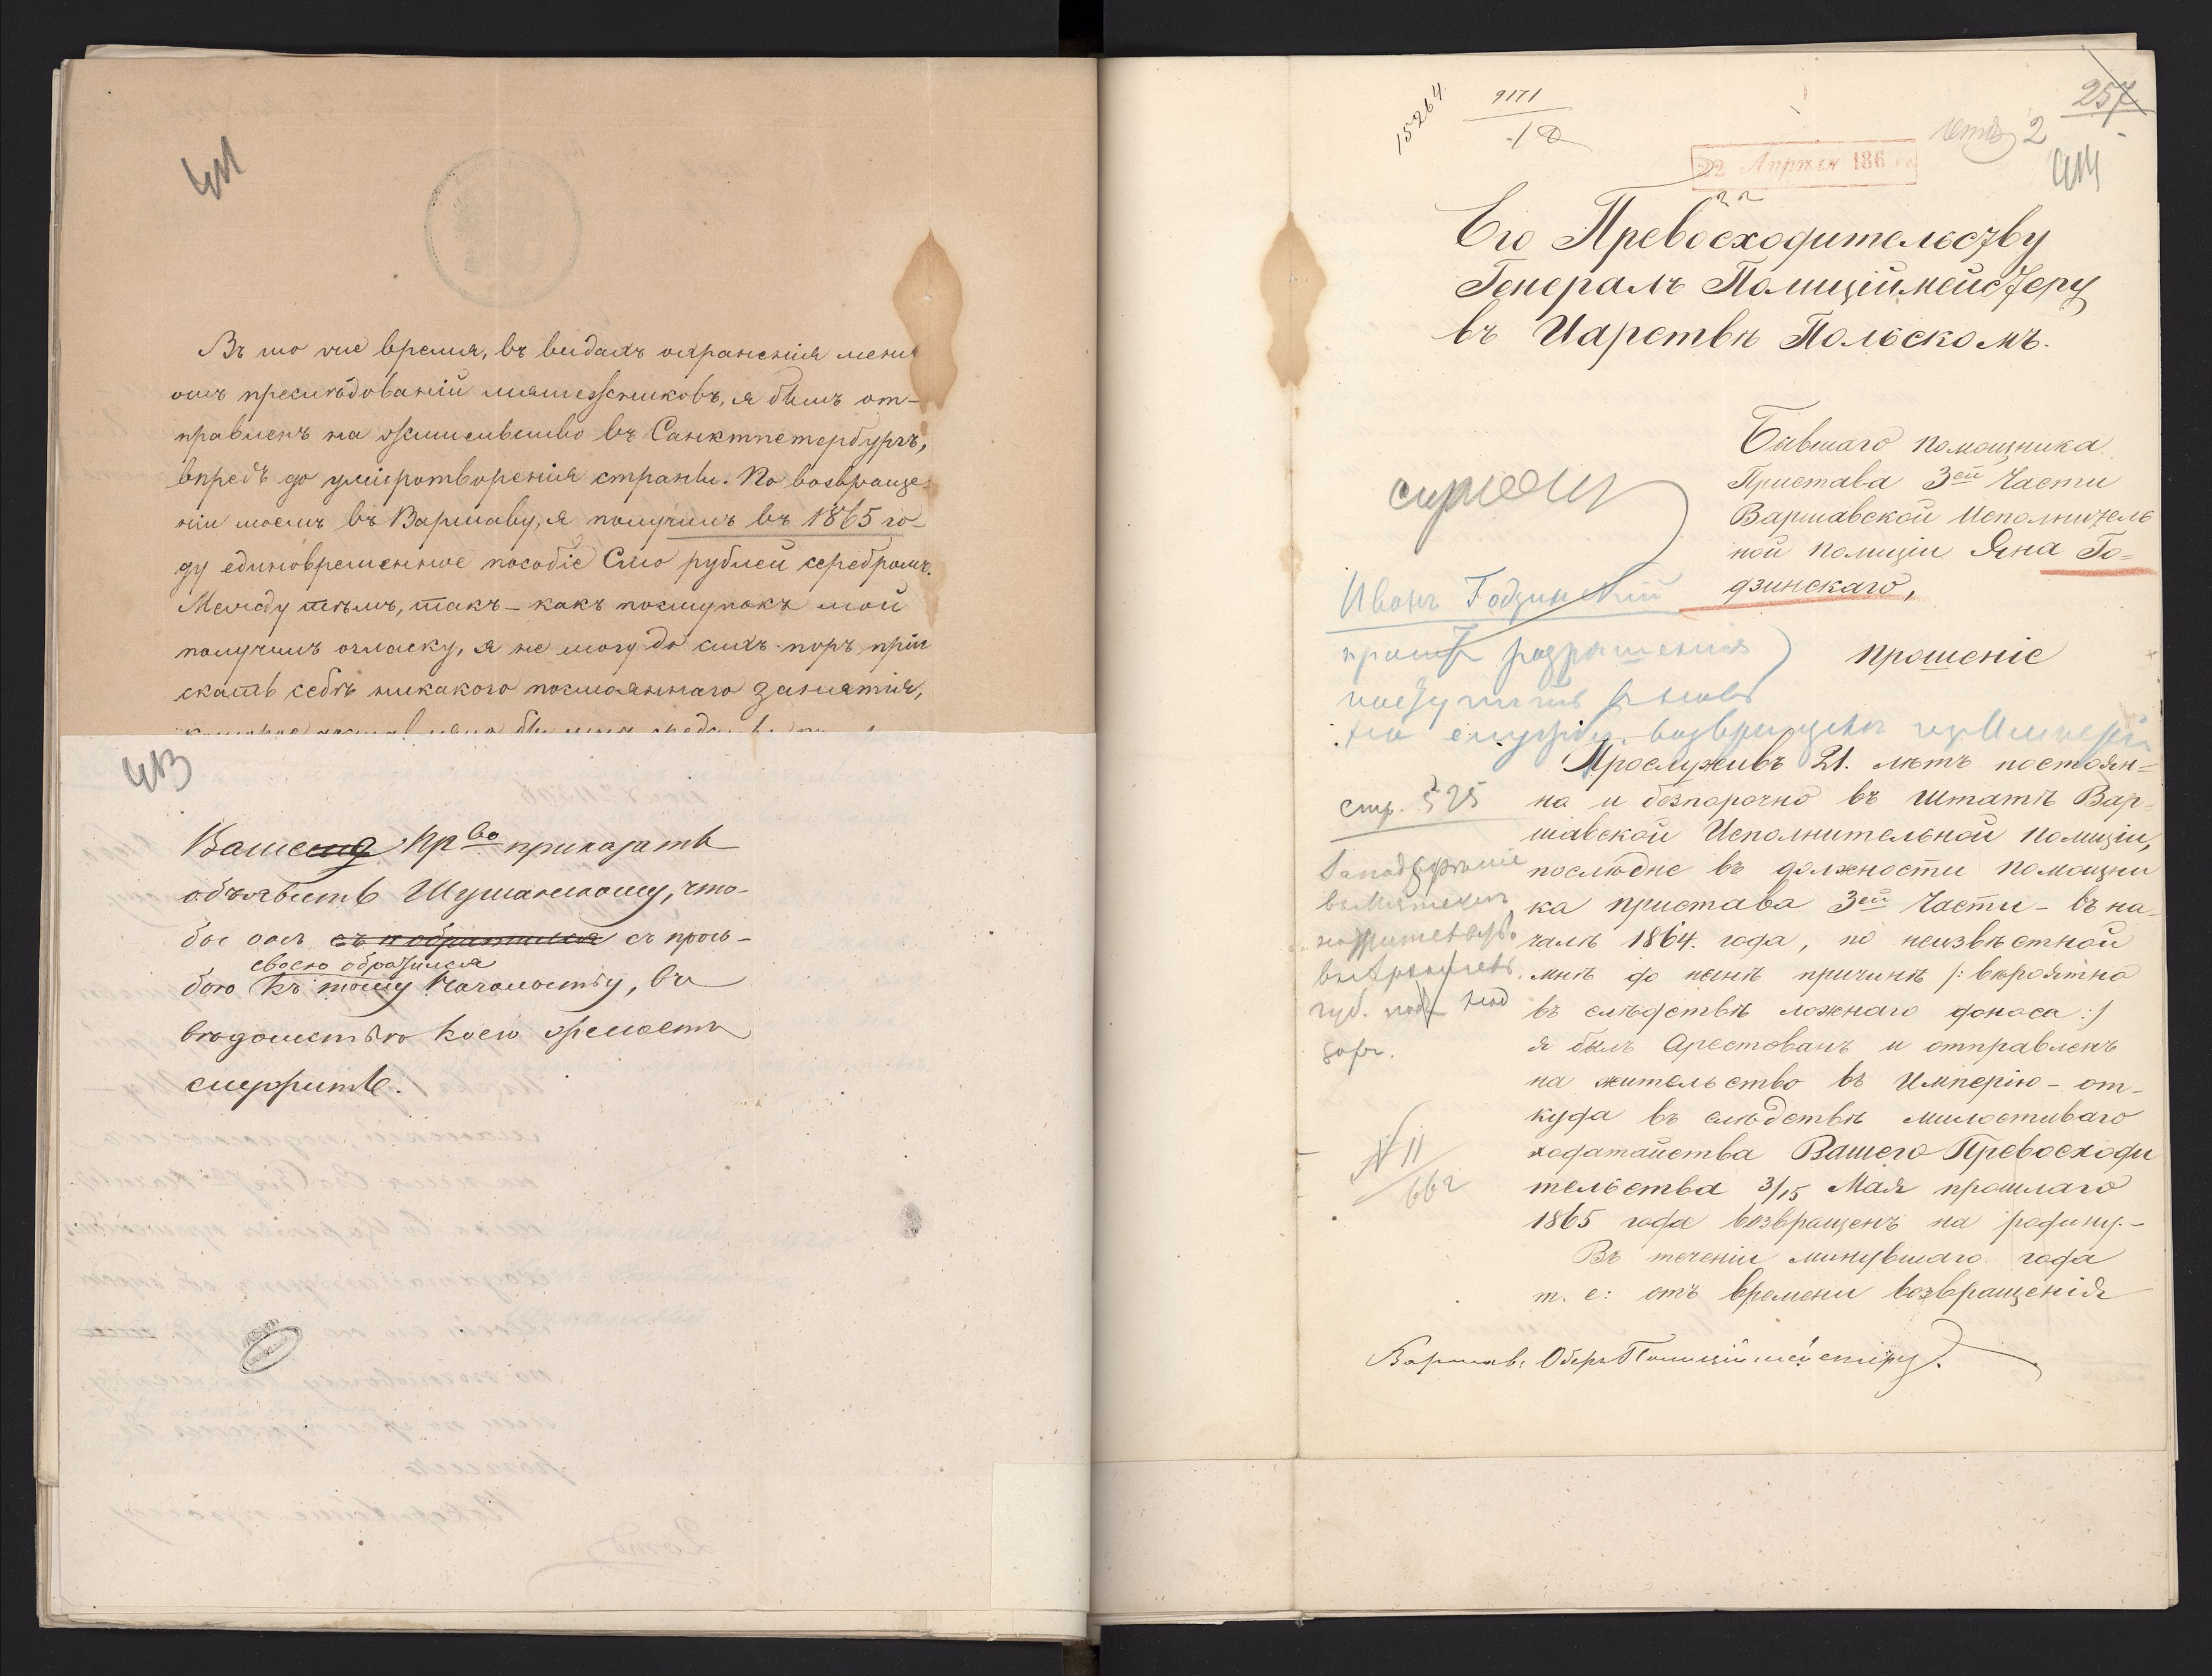 411
Въ то же время, въ видахъ охраненія меня
отъ преслѣдованій мятежниковъ, я былъ от-
правленъ на жительство въ Санктпетербургъ,
впредь до умиротворенія страны. По возвраще-
ніи моемъ въ Варшаву, я получилъ въ 1865 го-
ду единовременное пособіе Сто рублей серебромъ.
Между тѣмъ, такъ-какъ поступокъ мой
получилъ огласку, я не могу до сихъ поръ пріи
скать себѣ никакого постояннаго занятія,
413
Ваше Пр во приказать
объявить Шуманскому, что-
бы онъ съ прось-
своею обратился
бою къ тому Начальству, въ
вѣдомствѣ коего желаетъ
служить.
257
15264.
9171
22 Апрѣля 186
2
Его Превосходительству
Генералъ Полиціймейстеру
въ Царствѣ Польскомъ.
Бывшаго помощника
Пристава 3ей Части
Варшавской Исполнитель
ной полиціи Яна Го=
дзинскаго,
Иванъ Годзинскій
проситъ разрѣшенія
поступить вновь
на службу, возвращенъ изъ Имперіи
прошеніе
стр. 525
Прослуживъ 21. лѣтъ постоян=
на и безпорочно въ штатѣ Вар-
шавской Исполнительной полиціи,
послѣдне въ должности помощни
ка пристава 3ей Части - въ на-
чалѣ 1864. года, по неизвѣстной
мнѣ до нынѣ причинѣ /: вѣроятно
въ слѣдствѣ ложнаго доноса :/
я былъ арестованъ и отправленъ
на жительство въ Имперію - от-
куда въ слѣдствѣ милостиваго
ходатайства Вашего Превосходи
тельства 3/15 Мая прошлаго
1865 года возвращенъ на родину.-
Въ теченіи минувшаго года
т. е: отъ времени возвращенія
губ. подъ над
зоръ.
N 11
662
Варшав: Оберъ Полиціймейстеру.